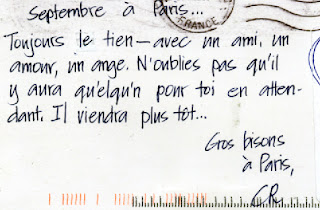 septembre à Paris...
FRANCE
Toujours le tien — avec un ami, un
amour, un ange. N'oublies pas qu'il
y aura qu'elqu'n pour toi en atten-
dant. Il viendra plus tôt...
Gros bisons
à Paris,
CR